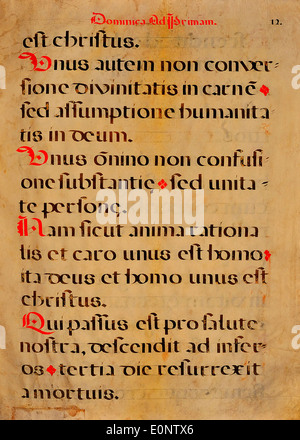 Dominica Ad Primam. 12.
est christus.
Vnus autem non conver-
sione divinitatis in carnē
sed assumptione humanita
tis in deum.
Vnus ōnino non confusi-
one substantie sed unita-
te persone.
Nam sicut anima rationa
lis et caro unus est homo
ita deus et homo unus est
christus.
Qui passus est pro salute
nostra, descendit ad infer-
os tertia die resurrexit
a mortuis.
alamy stock photo
E0NTX6